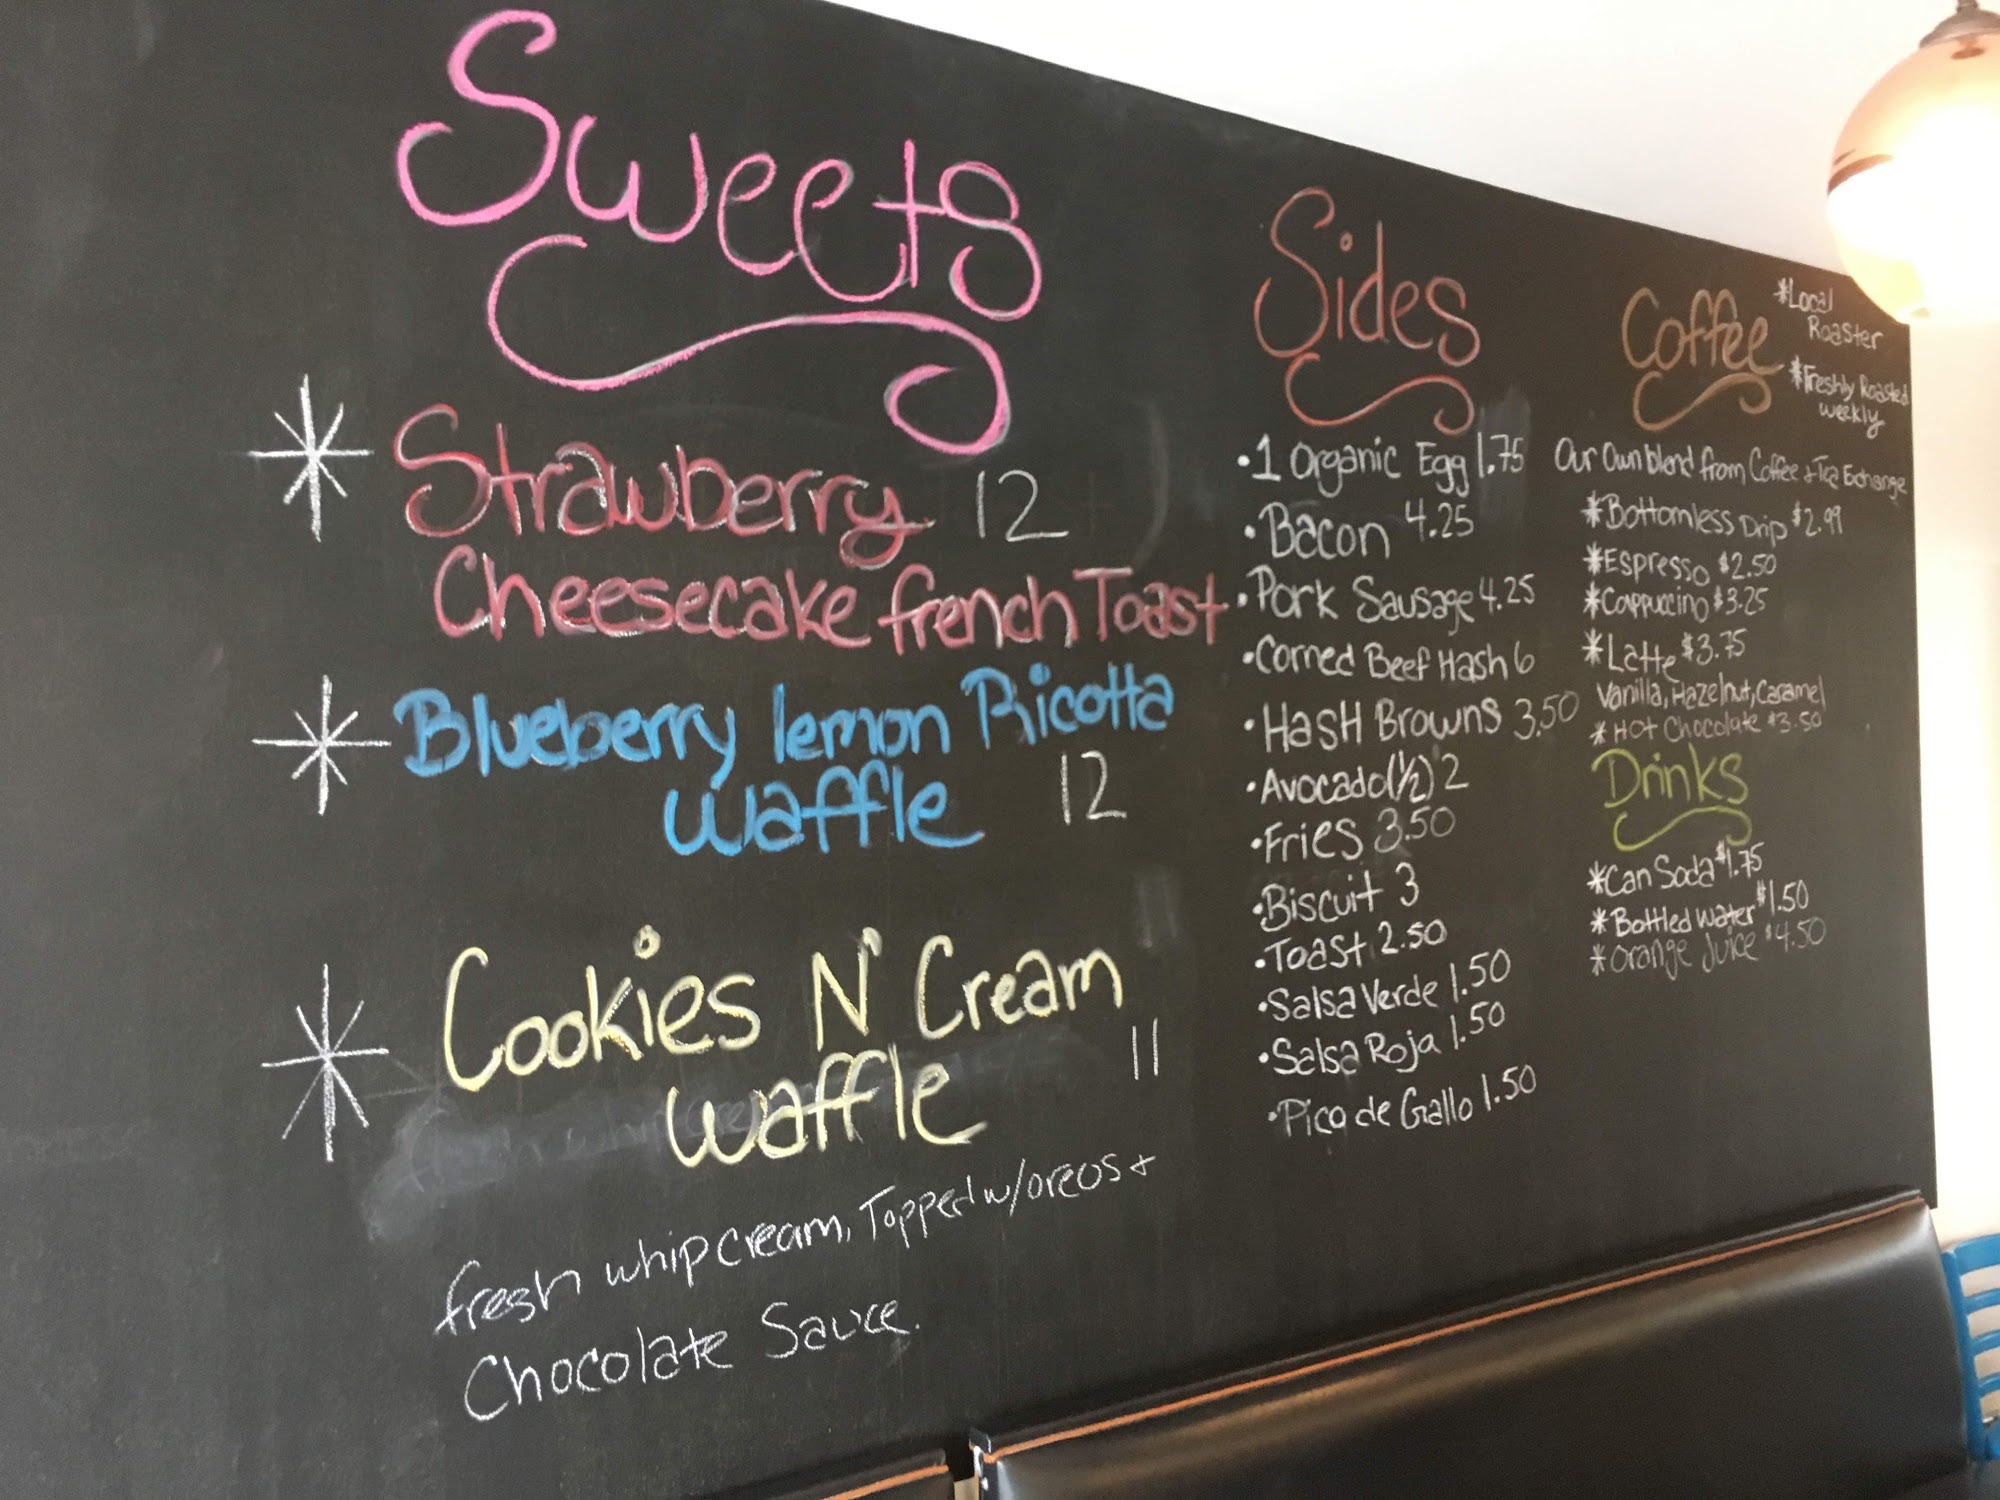 Sweets
Strawberry 12
Cheesecake french Toast
Blueberry lemon Ricotta
waffle 12
Cookies N' Cream
waffle 11
fresh whip cream, Topped w/oreos +
Chocolate Sauce.
Sides
•1 Organic Egg 1.75
•Bacon 4.25
•Pork Sausage 4.25
•Corned Beef Hash 6
•Hash Browns 3.50
•Avocado(1/2) 2
•Fries 3.50
•Biscuit 3
•Toast 2.50
•Salsa Verde 1.50
•Salsa Roja 1.50
•Pico de Gallo 1.50
Coffee
*Local
Roaster
*Freshly Roasted
weekly
Our Own blend from Coffee + Tea Exchange
*Bottomless Drip $2.99
*Espresso $2.50
*Cappuccino $3.25
*Latte $3.75
Vanilla, Hazelnut, Caramel
*Hot Chocolate $3.50
Drinks
*Can Soda $1.75
*Bottled Water $1.50
*Orange Juice $4.50